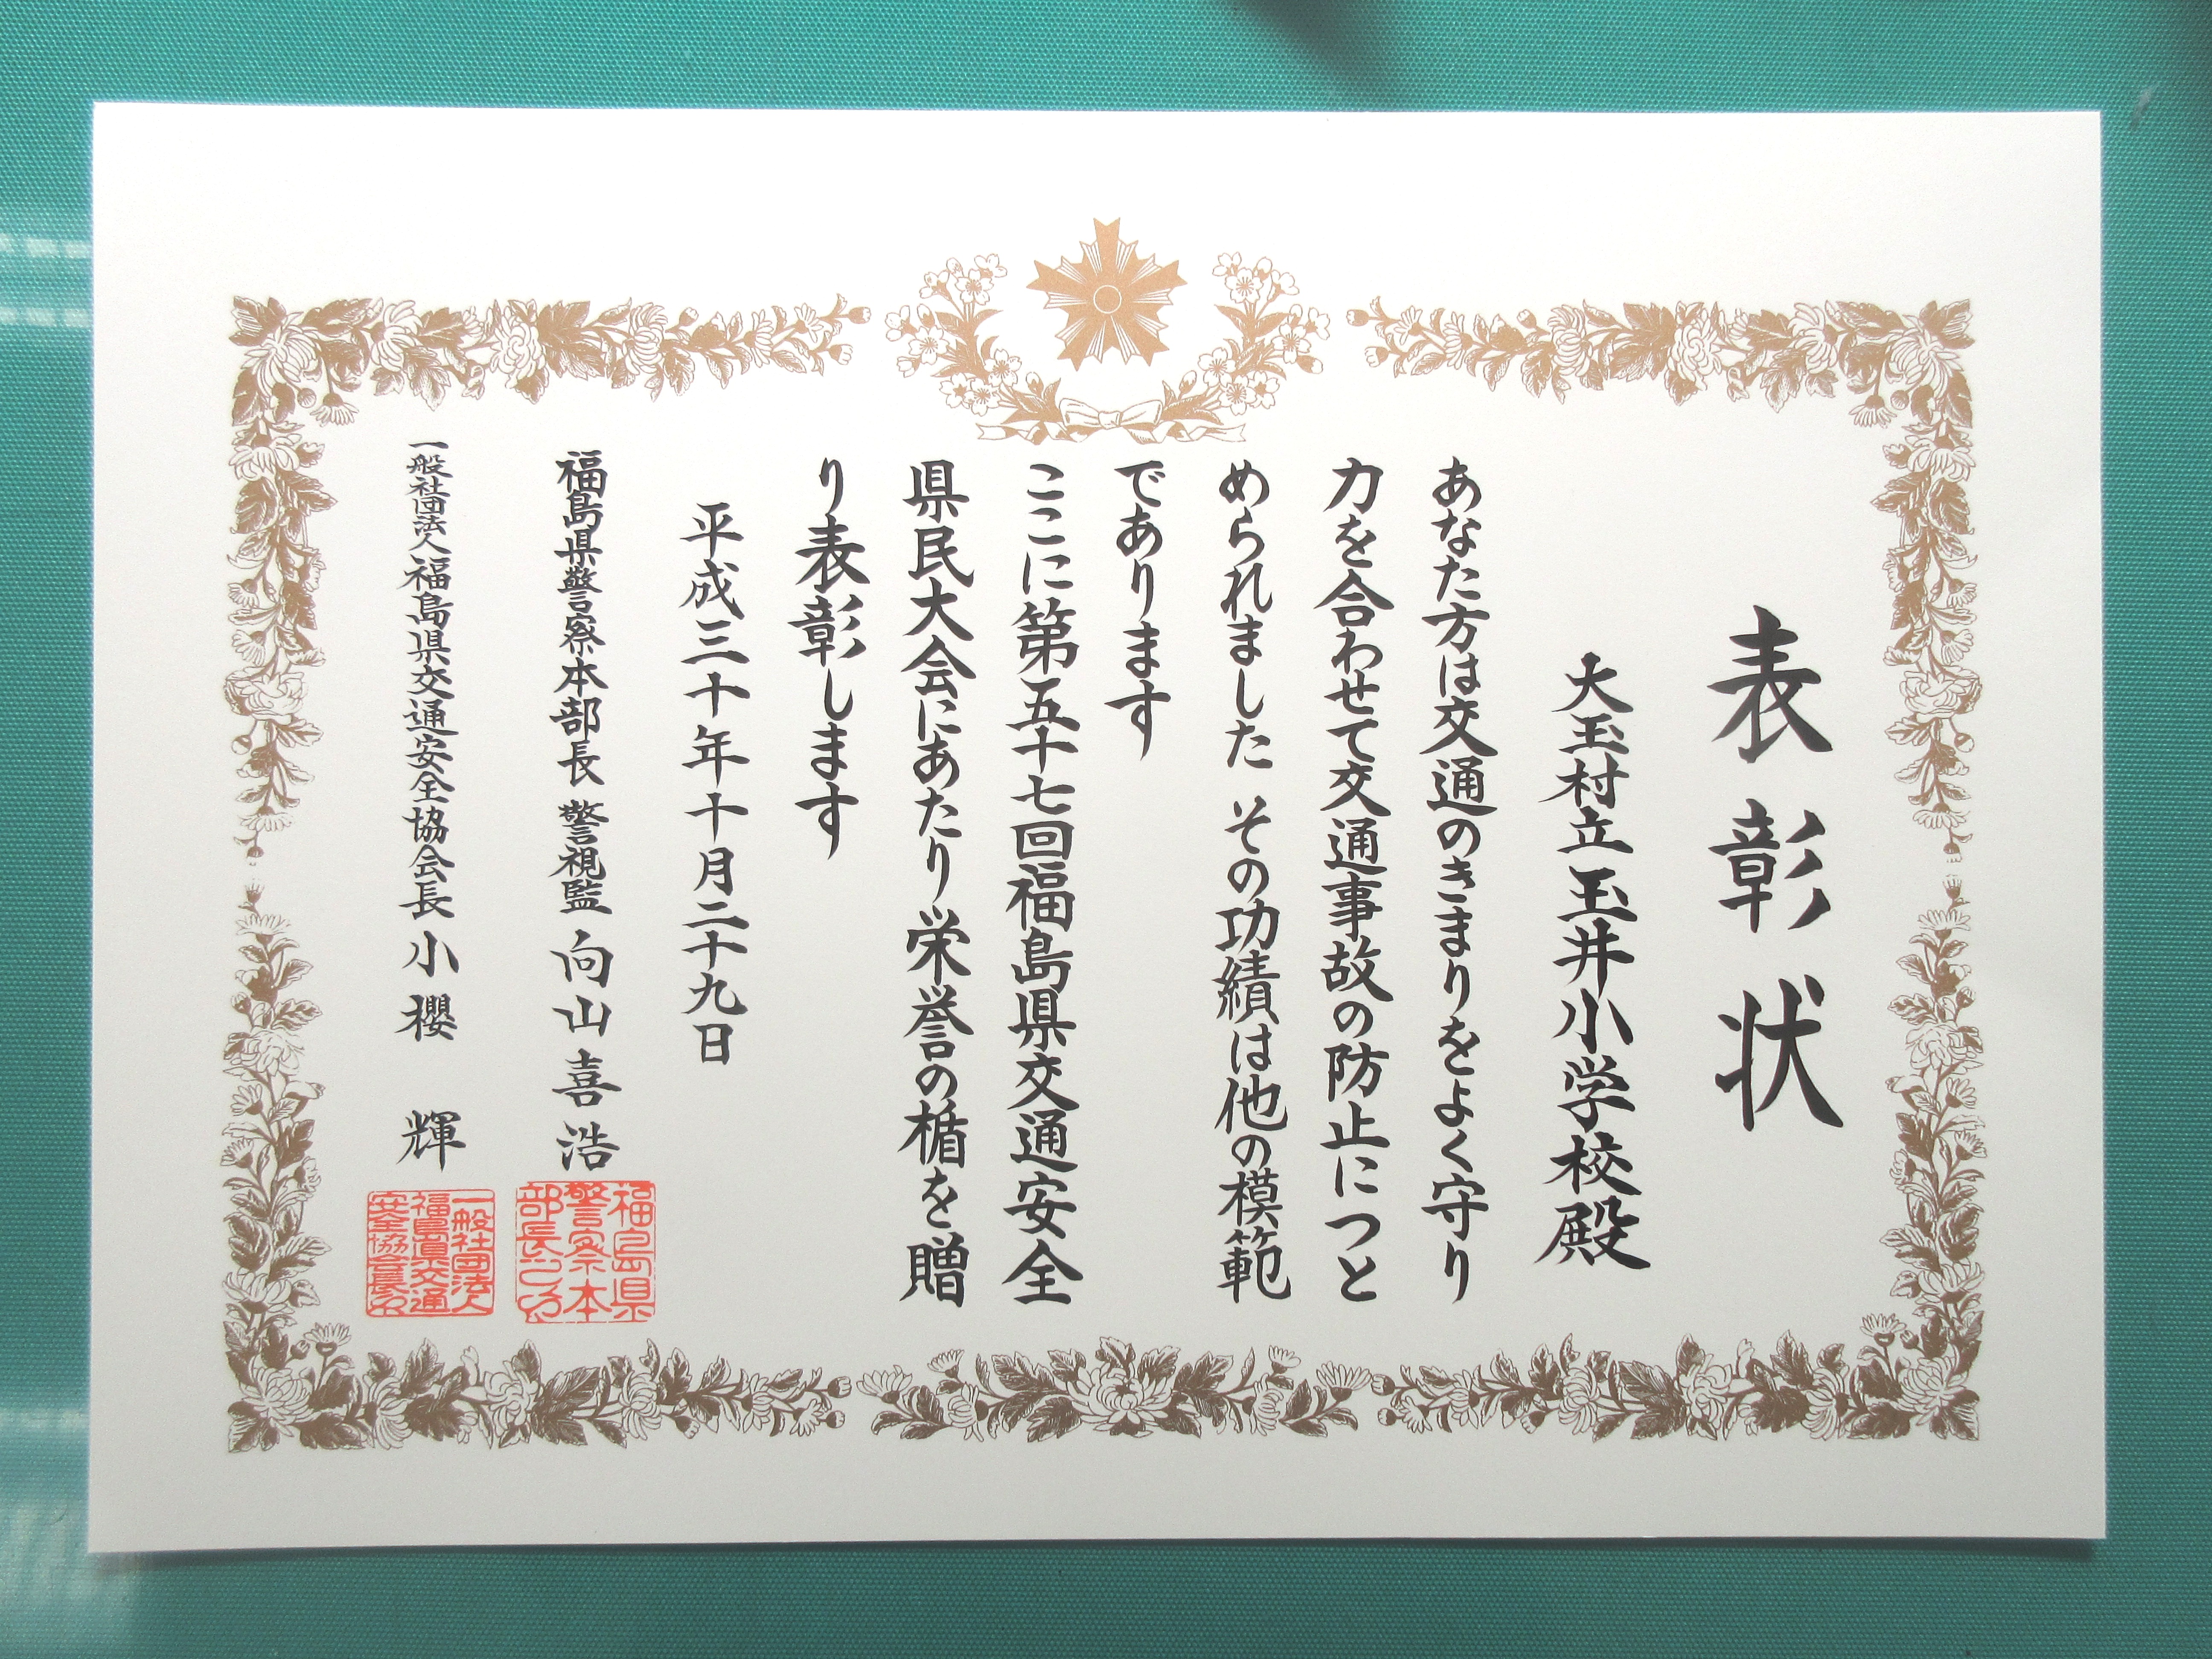 表彰状
大玉村立玉井小学校殿
あなた方は交通のきまりをよく守り
力を合わせて交通事故の防止につと
められました その功績は他の模範
であります
ここに第五十七回福島県交通安全
県民大会にあたり栄誉の楯を贈
り表彰します
平成三十年十月二十九日
福島県警察本部長 警視監 向山喜浩
福島県
警察本
部長之印
一般社団法人福島県交通安全協会長 小櫻 輝
一般社団法人
福島県交通
安全協会長印